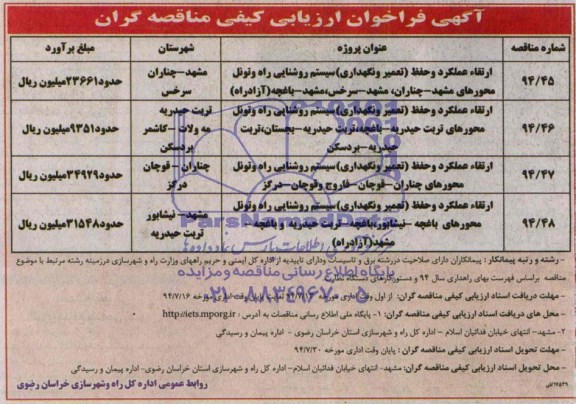 آگهی فراخوان ارزیابی کیفی مناقصه گران
شماره مناقصه
عنوان پروژه
شهرستان
مبلغ برآورد
۹۴/۴۵
ارتقاء عملکرد وحفظ (تعمیر ونگهداری)سیستم روشنایی راه وتونل
محورهای مشهد-چناران، مشهد-سرخس،مشهد-باغچه(آزادراه)
مشهد-چناران
سرخس
حدود۲۳۶۶۱میلیون ریال
۹۴/۴۶
ارتقاء عملکرد وحفظ (تعمیر ونگهداری)سیستم روشنایی راه وتونل
محورهای تربت حیدریه-باغچه،تربت حیدریه-بجستان،تربت
حیدریه-بردسکن
تربت حیدریه
مه ولات -کاشمر
بردسکن
حدود۹۳۵۱میلیون ریال
۹۴/۴۷
ارتقاء عملکرد وحفظ (تعمیر ونگهداری)سیستم روشنایی راه وتونل
محورهای چناران-قوچان-فاروج وقوچان-درگز
چناران - قوچان
درگز
حدود۳۴۹۲۹میلیون ریال
۹۴/۴۸
ارتقاء عملکرد وحفظ (تعمیر ونگهداری)سیستم روشنایی راه وتونل
محورهای باغچه -نیشابور،باغچه- تربت حیدریه و باغچه -
مشهد(آزادراه)
مشهد- نیشابور
تربت حیدریه
حدود۳۱۵۴۸میلیون ریال
ParsNamadData
پایگاه اطلاع رسانی مناقصه ومزایده
۰۲۱-۸۸۳۴۹۶۷۰-۵
- رشته و رتبه پیمانکار: پیمانکاران دارای صلاحیت دررشته برق و تاسیسات ودارای تاییدیه ازاداره کل ایمنی و حریم راههای وزارت راه و شهرسازی درزمینه رشته مرتبط با موضوع
مناقصه براساس فهرست بهای راهداری سال ۹۴ و دستورکارهای دستگاه نظارت
- مهلت دریافت اسناد ارزیابی کیفی مناقصه گران: از اول وقت اداری مورخه پایان وقت اداری مورخه ۹۴/۷/۱۶
- محل های دریافت اسناد ارزیابی کیفی مناقصه گران: ۱- پایگاه ملی اطلاع رسانی مناقصات به آدرس : http://iets.mporg.ir
۲- مشهد- انتهای خیابان فدائیان اسلام - اداره کل راه و شهرسازی استان خراسان رضوی - اداره پیمان و رسیدگی
- مهلت تحویل اسناد ارزیابی کیفی مناقصه گران: پایان وقت اداری مورخه ۹۴/۷/۳۰
- محل تحویل اسناد ارزیابی کیفی مناقصه گران: مشهد- انتهای خیابان فدائیان اسلام- اداره کل راه و شهرسازی استان خراسان رضوی- اداره پیمان و رسیدگی
روابط عمومی اداره کل راه وشهرسازی خراسان رضوی